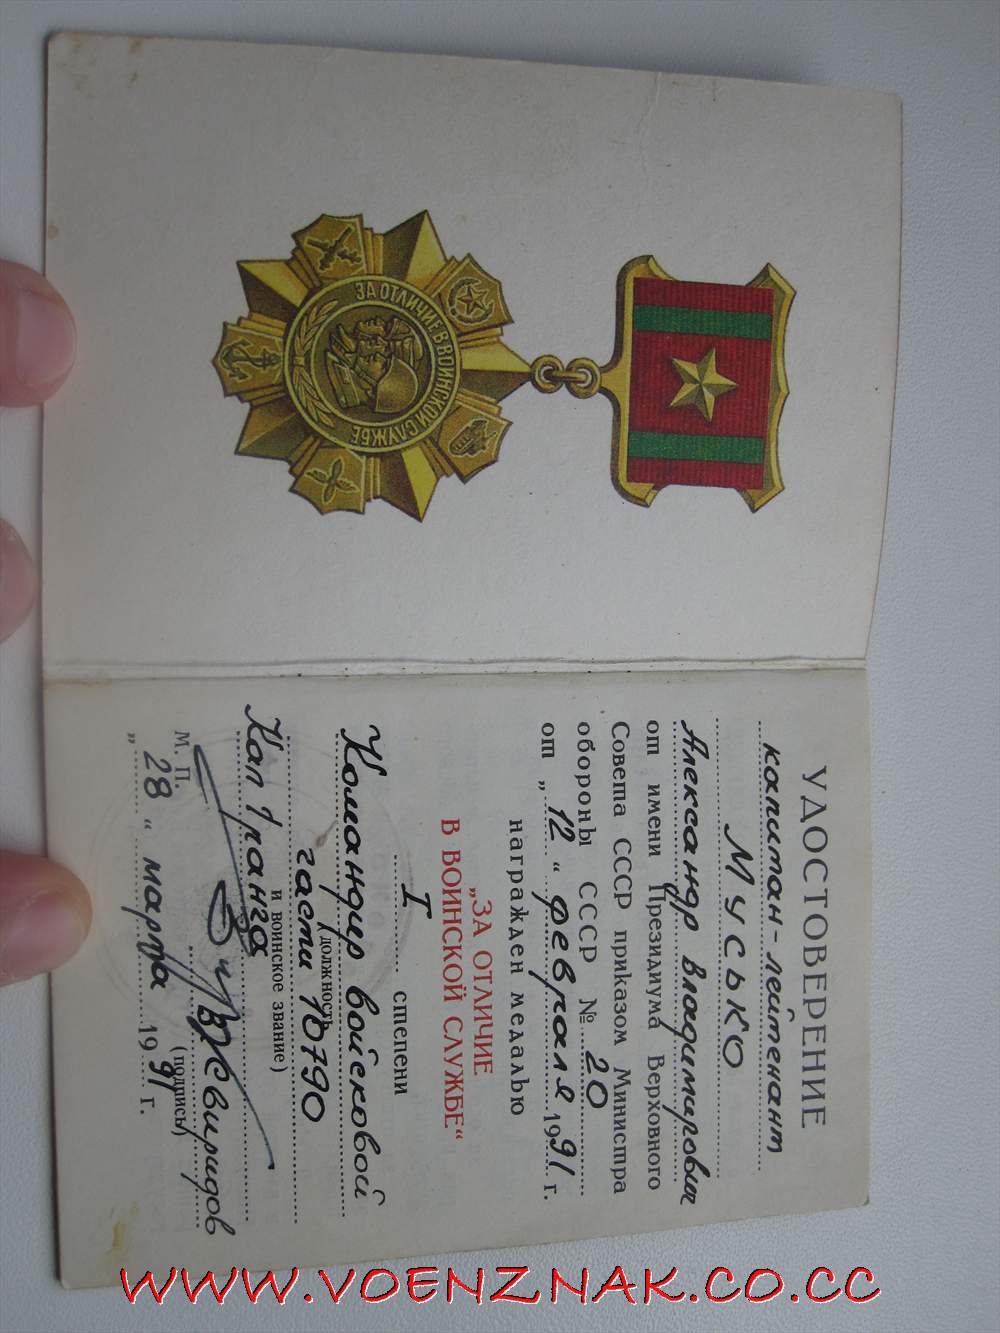 ЗА ОТЛИЧИЕ В ВОИНСКОЙ СЛУЖБЕ
УДОСТОВЕРЕНИЕ
капитан-лейтенант
Мусько
Александр Владимирович
от имени Президиума Верховного
Совета СССР приказом Министра
обороны СССР № 20
от „12“ февраля 1991 г.
награжден медалью
„ЗА ОТЛИЧИЕ
В ВОИНСКОЙ СЛУЖБЕ“
I степени
Командир войсковой
(должность
части 10790
и воинское звание)
Кап 1 ранга
В. Свиридов
(подпись)
М. П.
„28“ марта 1991 г.
WWW.VOENZNAK.CO.CC